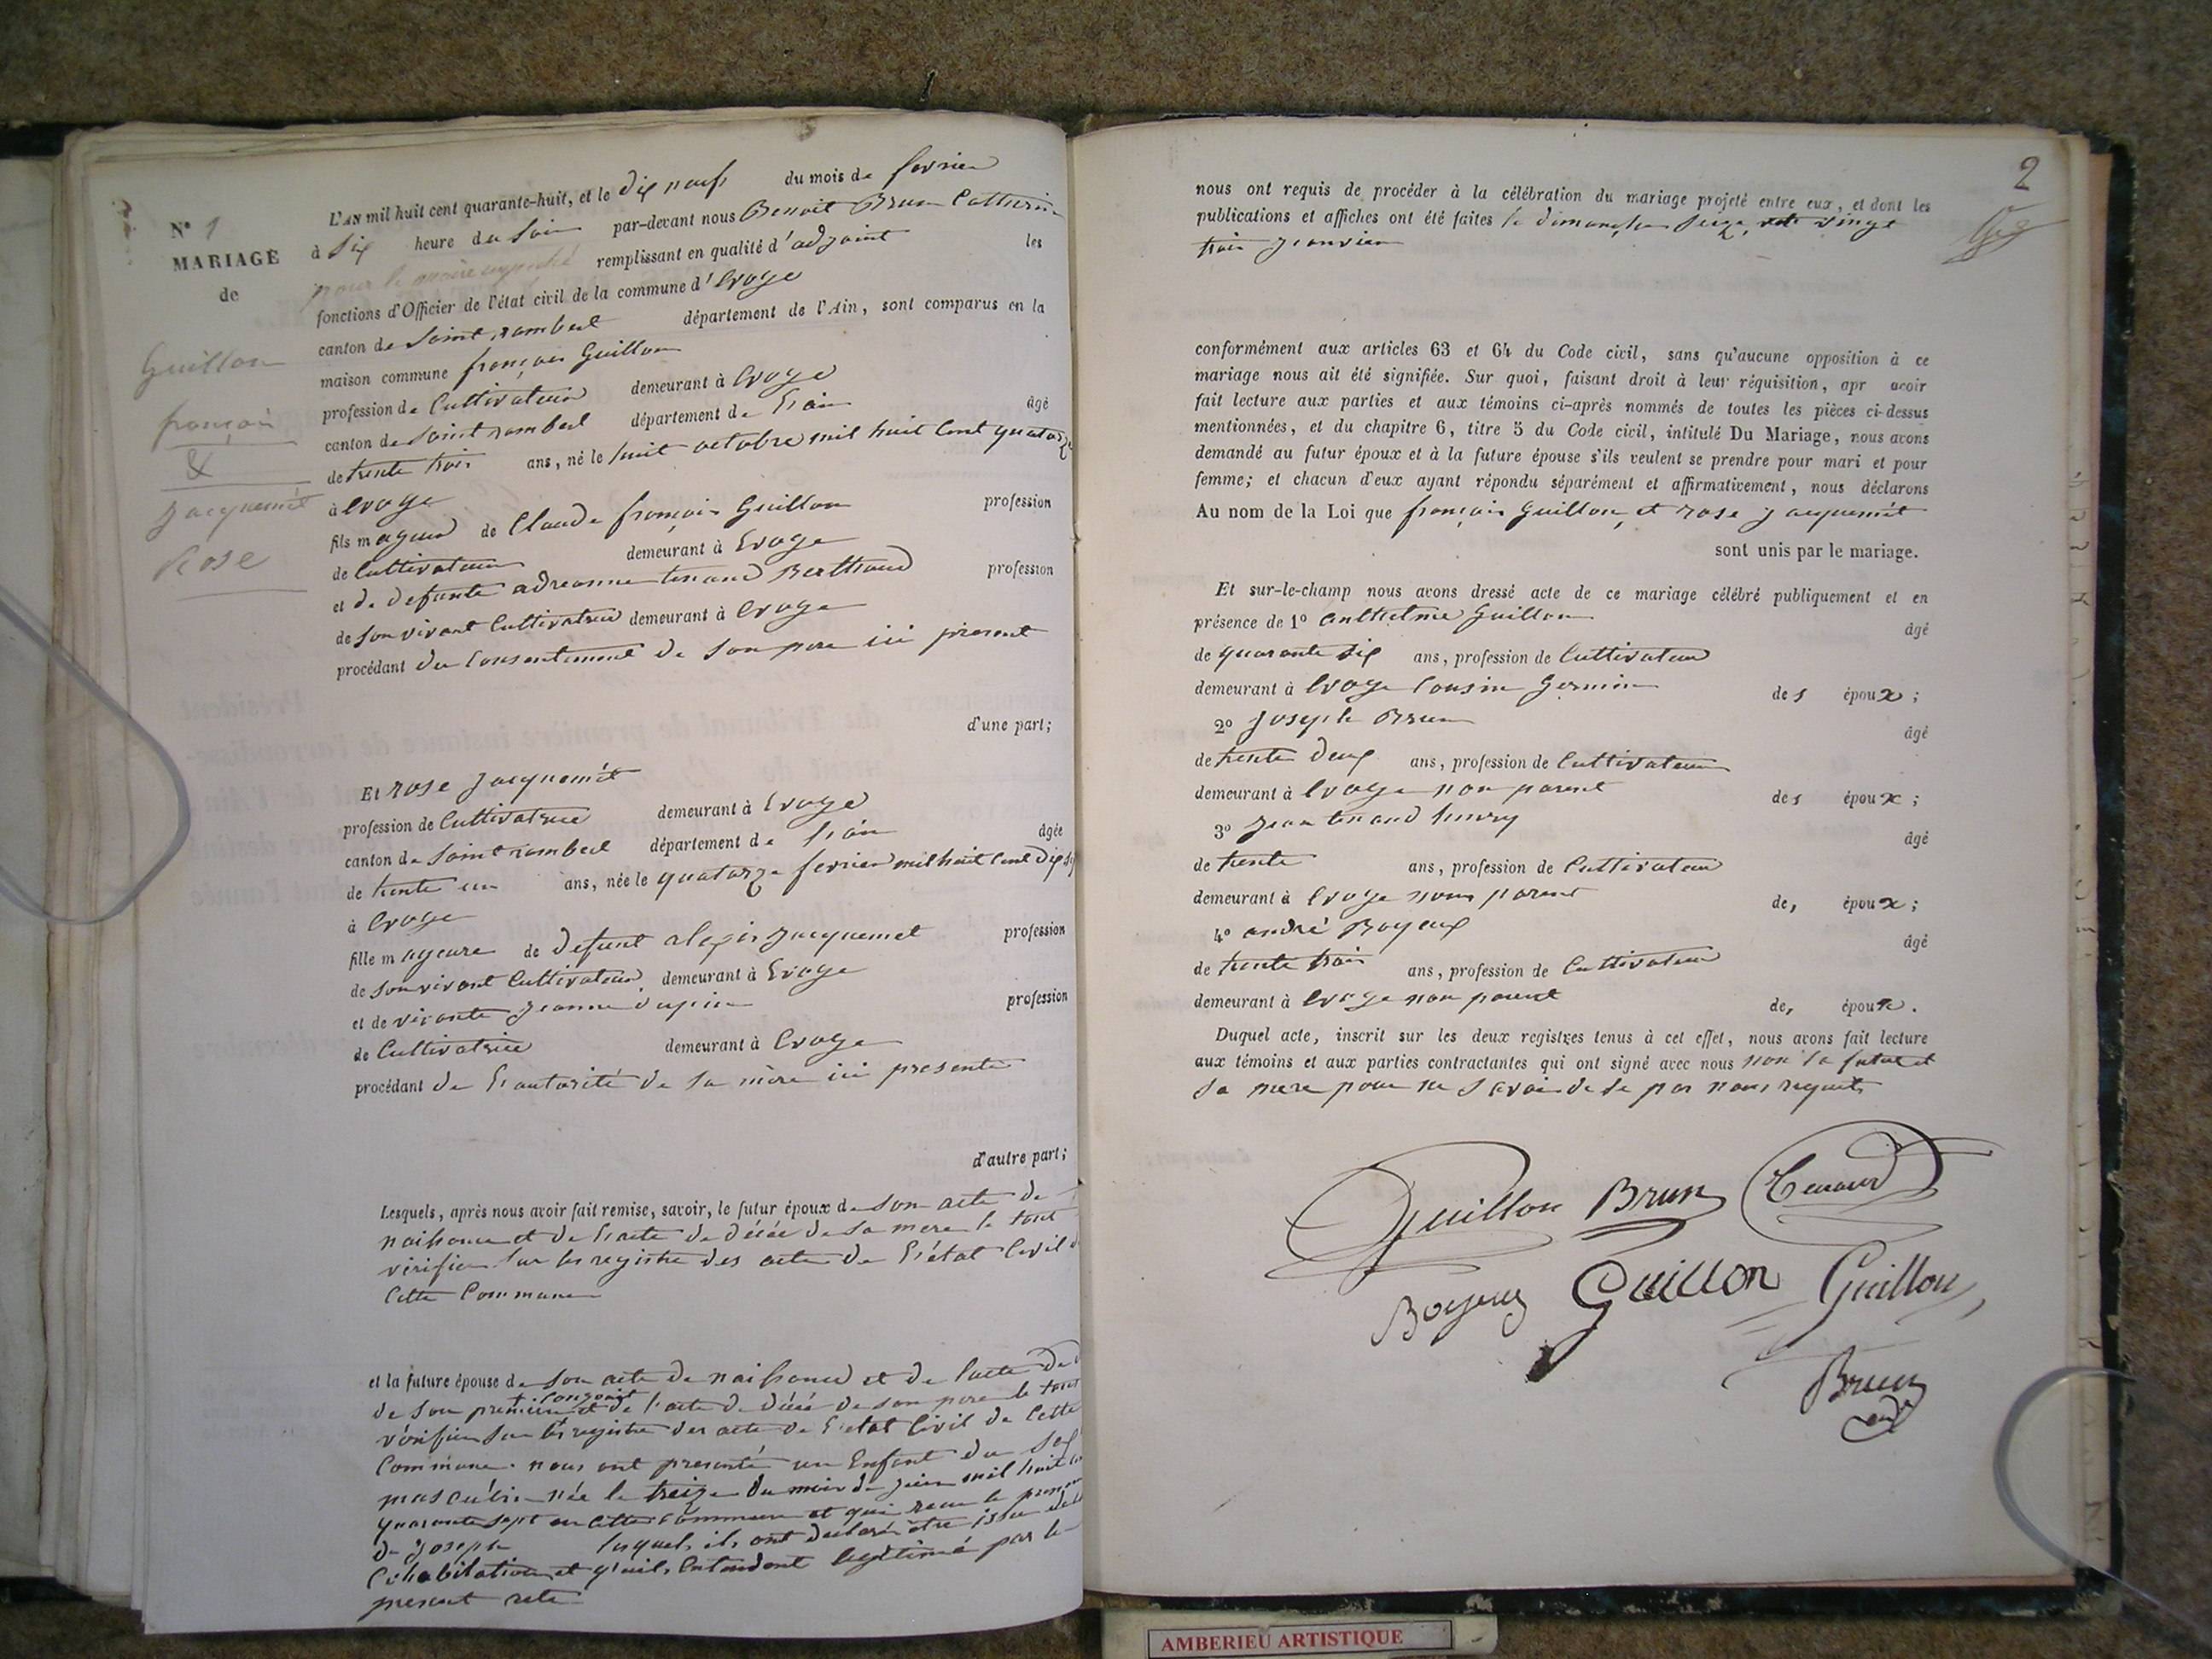 N° 1
MARIAGE
de
Guillon
françois
&
Jacquemet
Rose
L'AN mil huit cent quarante-huit, et le dix neuf du mois de fevrier
à six heure du soir par-devant nous Benoit Brun Catherin
pour le maire empeché remplissant en qualité d'adjoint les
fonctions d'Officier de l'état civil de la commune d'Evoge
canton de Saint rambert département de l'Ain, sont comparus en la
maison commune françois Guillon
profession de Cultivateur demeurant à Evoge
canton de Saint rambert département de l'ain âgé
de trente trois ans, né le huit octobre mil huit cent quatorze
à Evoge
fils mageur de Claude françois Guillon profession
de Cultivateur demeurant à Evoge
et de defunte adreanne tenand Berthaud profession
de son vivant Cultivatrice demeurant à Evoge
procédant du Consentement de son pere ici present
d'une part;
Et rose Jacquemet
profession de Cultivatrice demeurant à Evoge
canton de Saint rambert département de l'ain âgée
de trente un ans, née le quatorze fevrier mil huit cent dix
à Evoge
fille mageure de defunt alexis Jacquemet profession
de son vivant Cultivateur demeurant à Evoge
et de vivante Jeanne dupin profession
de Cultivatrice demeurant à Evoge
procédant de l'autorité de sa mère ici presente
d'autre part;
Lesquels, après nous avoir fait remise, savoir, le futur époux de son acte de
naissance et de l'acte de décée de sa mere le tout
vérifier sur les registre des acte de l'état Civil
Cette Commune
et la future épouse de son acte de naissance et de l'acte de
conjoint
de son premier et de l'acte de décée de son pere le tout
vérifier sur les registre des acte de l'etat Civil de Cette
Commune. nous ont presenté un Enfant du sex
masculin née le treize du mois de juin mil huit
quarante sept en Cette Commune et qui recu le
de Joseph lequel ils ont declaré être issu
Cohabitation et qu'ils entendent legitimé par le
present acte
2
nous ont requis de procéder à la célébration du mariage projeté entre eux, et dont les
publications et affiches ont été faites le dimanche seize, vingt
trois Janvier
conformément aux articles 63 et 64 du Code civil, sans qu'aucune opposition à ce
mariage nous ait été signifiée. Sur quoi, faisant droit à leur réquisition, apr avoir
fait lecture aux parties et aux témoins ci-après nommés de toutes les pièces ci-dessus
mentionnées, et du chapitre 6, titre 5 du Code civil, intitulé Du Mariage, nous avons
demandé au futur époux et à la future épouse s'ils veulent se prendre pour mari et pour
femme; et chacun d'eux ayant répondu séparément et affirmativement, nous déclarons
Au nom de la Loi que françois Guillon et rose Jacquemet
sont unis par le mariage.
Et sur-le-champ nous avons dressé acte de ce mariage célébré publiquement et en
présence de 1° anthelme Guillon âgé
de quarante six ans, profession de Cultivateur
demeurant à Evoge Cousin Germin des époux;
2° Joseph Brun âgé
de trente deux ans, profession de Cultivateur
demeurant à Evoge non parent des époux;
3° Jean tenand henry âgé
de trente ans, profession de Cultivateur
demeurant à Evoge non parent des époux;
4° andré Boyeux âgé
de trente trois ans, profession de Cultivateur
demeurant à Evoge non parent des époux.
Duquel acte, inscrit sur les deux registres tenus à cet effet, nous avons fait lecture
aux témoins et aux parties contractantes qui ont signé avec nous non la future et
sa mere pour ne savoir de se par nous requits
Guillon Brun Tenand
Boyeux Guillon Guillon
Brun
AMBERIEU ARTISTIQUE